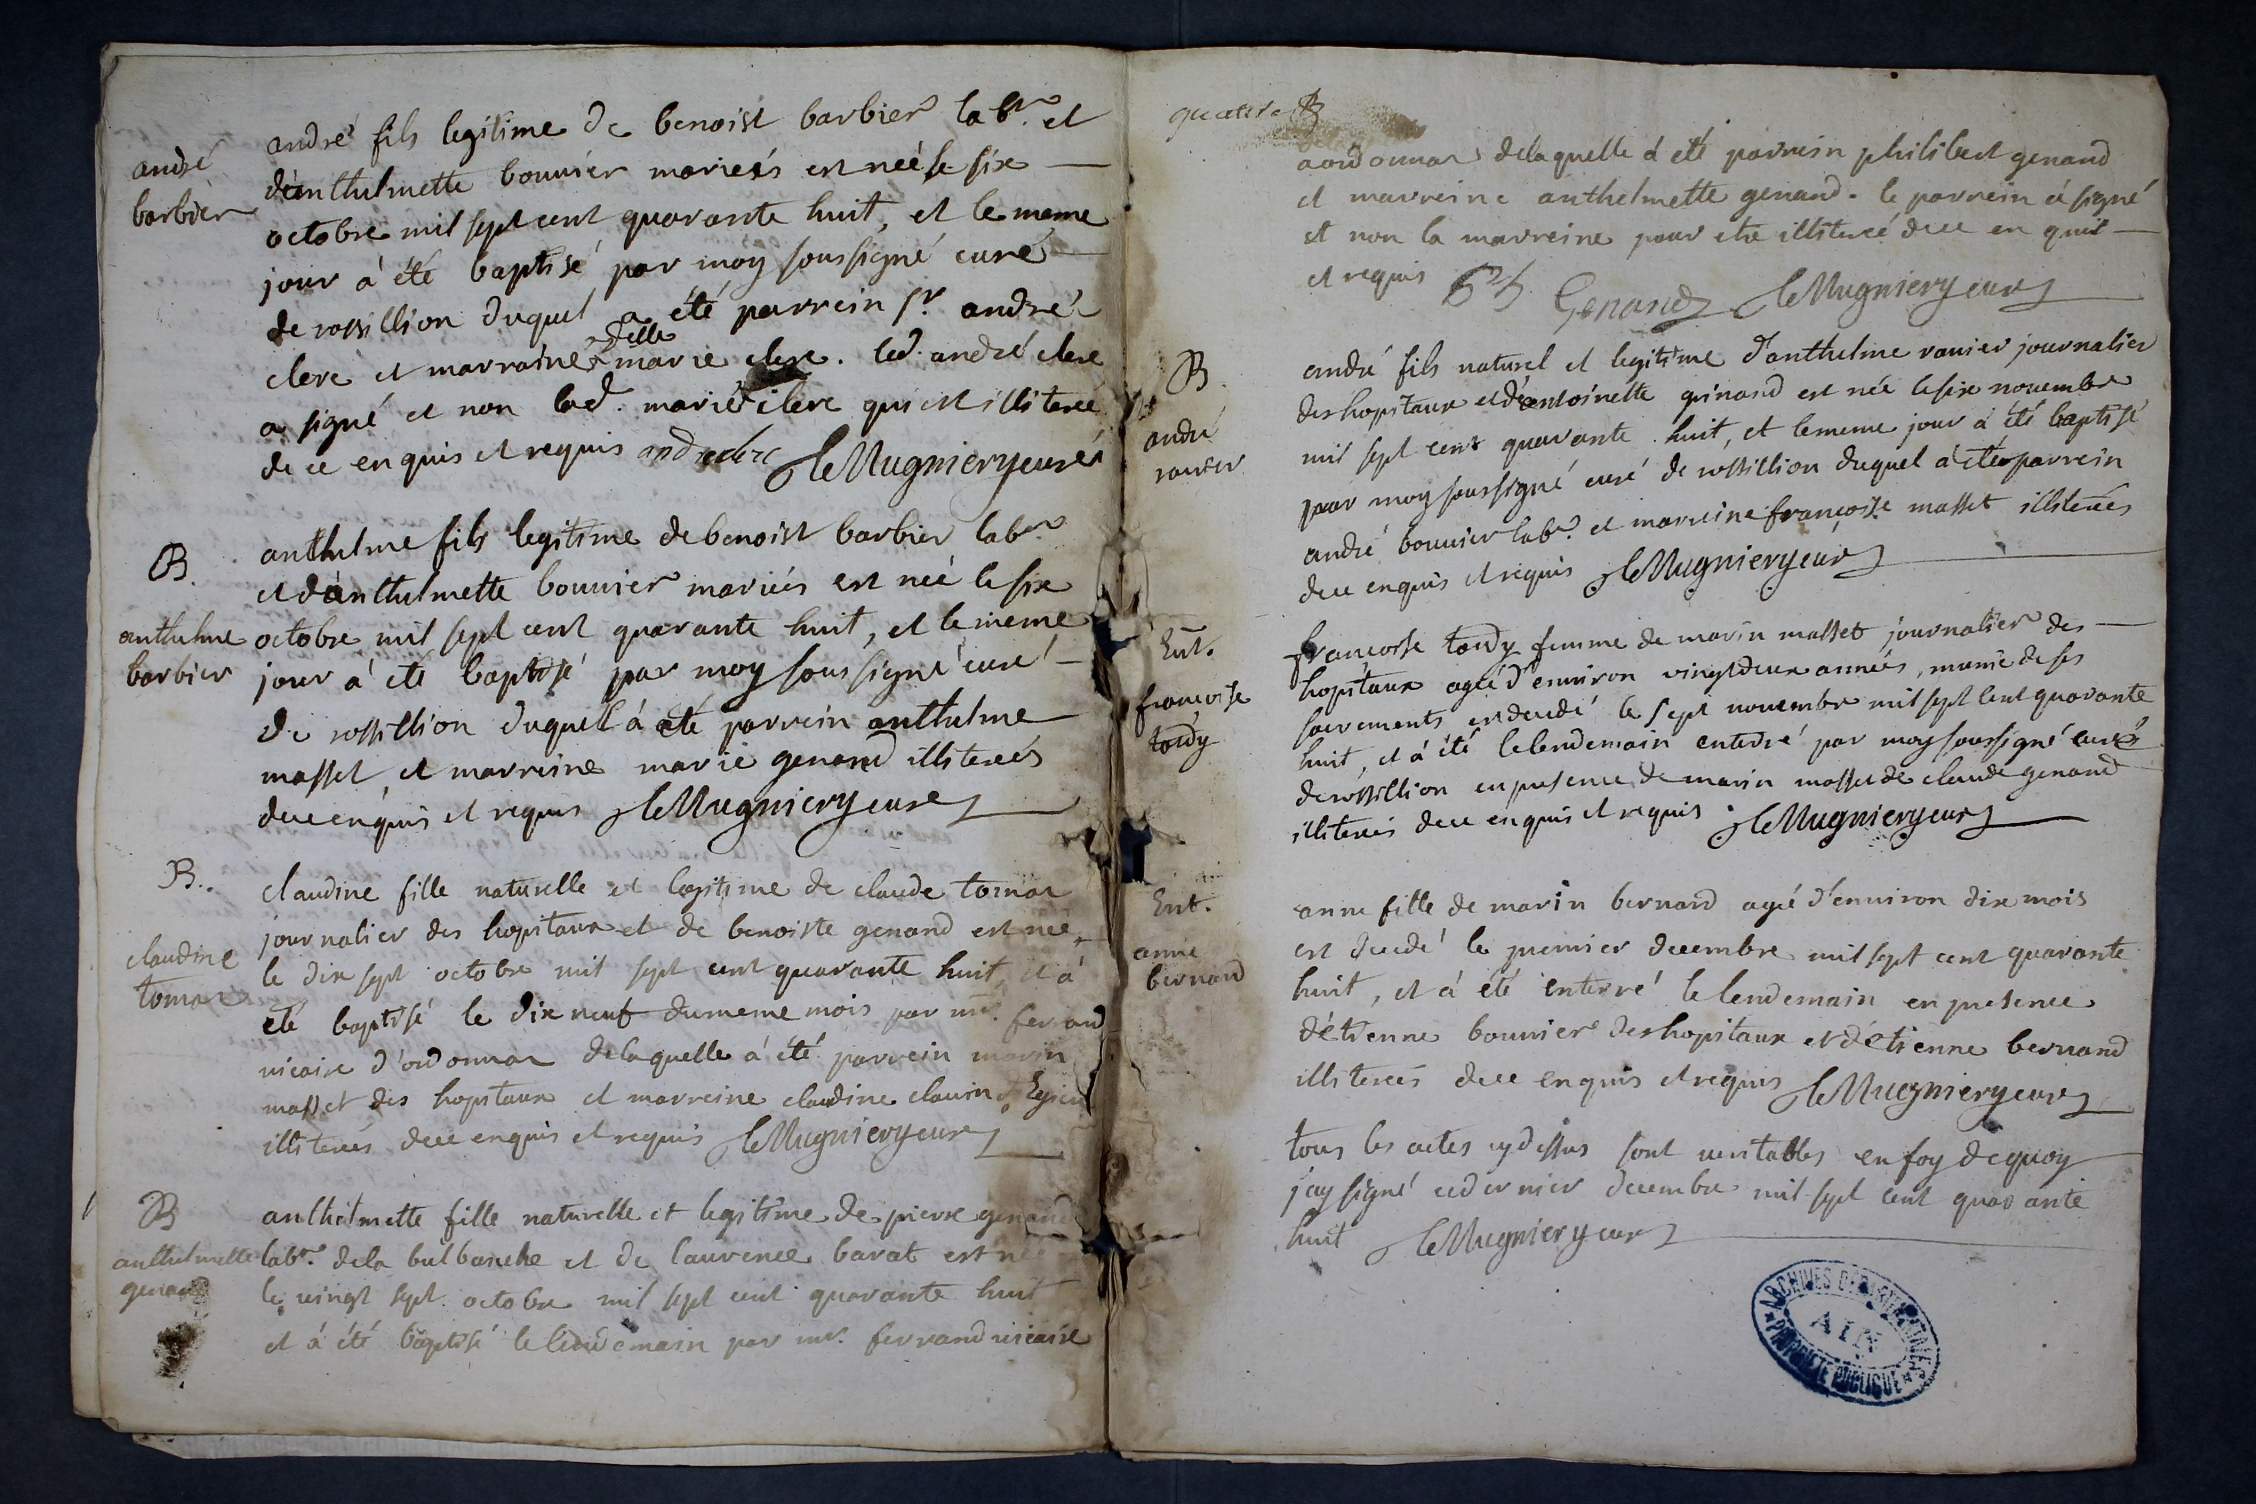 andré
barbier
andré fils legitime de benoist barbier labr. et
d'anthelmette bouvier mariés est née le six
octobre mil sept cent quarante huit, et le meme
jour à été baptisé par moy soussigné curé
de rossillion duquel a été parrein sr. andré
clerc et marraine delle marie clerc. led. andré clerc
a signé et non lad. marie clerc qui est illiteré
de ce enquis et requis andre clerc Le Mugniery curé
B.
anthelme
barbier
anthelme fils legitime de benoist barbier labr.
et d'anthelmette bouvier mariés est née le six
octobre mil sept cent quarante huit, et le meme
jour à été baptisé par moy soussigné curé
de rossillion duquel à été parrein anthelme
masset, et marreine marie genand illiterés
de ce enquis et requis Le Mugniery curé
B..
claudine
tornar
claudine fille naturelle et legitime de claude tornar
journalier des hopitaux et de benoiste genand est née
le dix sept octobre mil sept cent quarante huit, et à
été baptisé le dix neuf du meme mois par mr. ferrand
vicaire d'ordonnar delaquelle à été parrein marin
masset des hopitaux et marreine claudine clavin
illiterés de ce enquis et requis Le Mugniery curé
B
anthelmette
genand
anthelmette fille naturelle et legitime de pierre genand
labr. dela bulbanche et de laurence barat est née
le vingt sept octobre mil sept cent quarante huit
et à été baptisé le lendemain par mr. ferrand vicaire
quatre
aordonnar delaquelle à été parrein philibert genand
et marreine anthelmette genand. le parrein à signé
et non la marreine pour etre illiteré de ce enquis
et requis Genand Le Mugniery curé
B
andré
ravier
andré fils naturel et legitime d'anthelme ravier journalier
des hopitaux et d'antoinette grinand est née le six novembre
mil sept cent quarante huit, et le meme jour à été baptisé
par moy soussigné curé de rossillion duquel à été parrein
andré bouvier labr. et marreine françoise masset illiterés
de ce enquis et requis Le Mugniery curé
Ent.
françoise
tardy
françoise tardy femme de marin masset journalier des
hopitaux agée d'environ vingt deux années, munie de ses
sacrements est decedé le sept novembre mil sept cent quarante
huit, et à été le lendemain enterré par moy soussigné curé
de rossillion en presence de marin masset de claude genand
illiterés de ce enquis et requis Le Mugniery curé
Ent.
anne
bernard
anne fille de marin bernard agé d'environ dix mois
est decedé le premier decembre mil sept cent quarante
huit, et à été enterré le lendemain en presence
d'étienne bouvier des hopitaux et d'étienne bernard
illiterés de ce enquis et requis Le Mugniery curé
tous les actes cy dessus sont veritables en foy de quoy
j'ay signé ce dernier decembre mil sept cent quarante
huit Le Mugniery curé
ARCHIVES DÉPARTEMENTALES
AIN
PROPRIÉTÉ PUBLIQUE